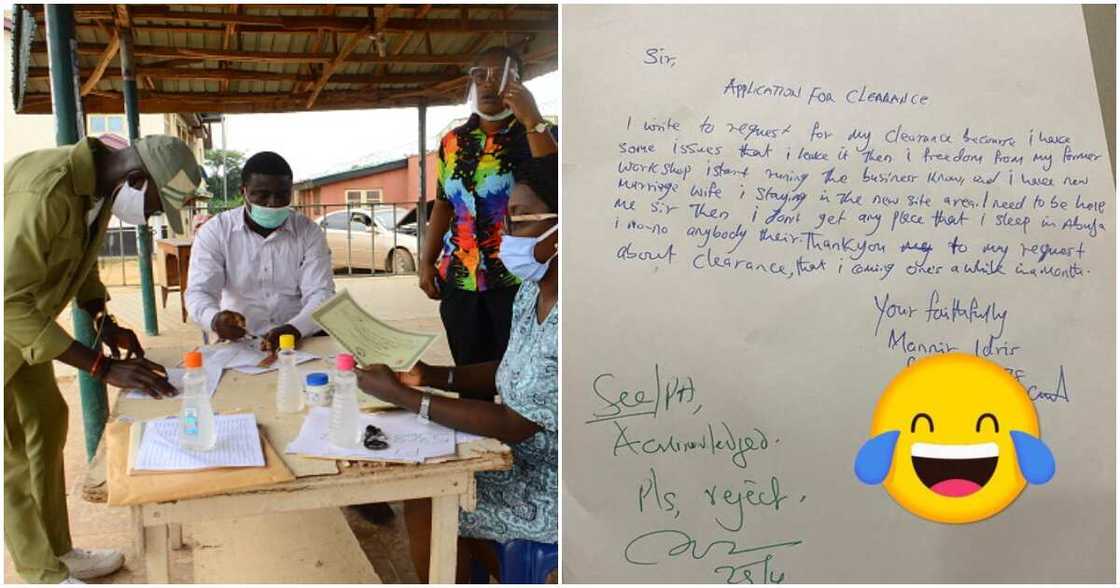 Sir,
APPLICATION FOR CLEARANCE
I write to request for my clearance because i have
some issues that i leave it then i freedom from my former
workshop i start runing the business know, and i have new
Marriage wife i staying in the new site area. I need to be hele
me sir Then i don't get any place that i sleep in Abuja
i no-no anybody their. Thank you to my request
about clearance, that i coming one's a while in a month.
Your faithfully
Mannir Idris
See/PA,
Acknowledged.
Pls, reject.